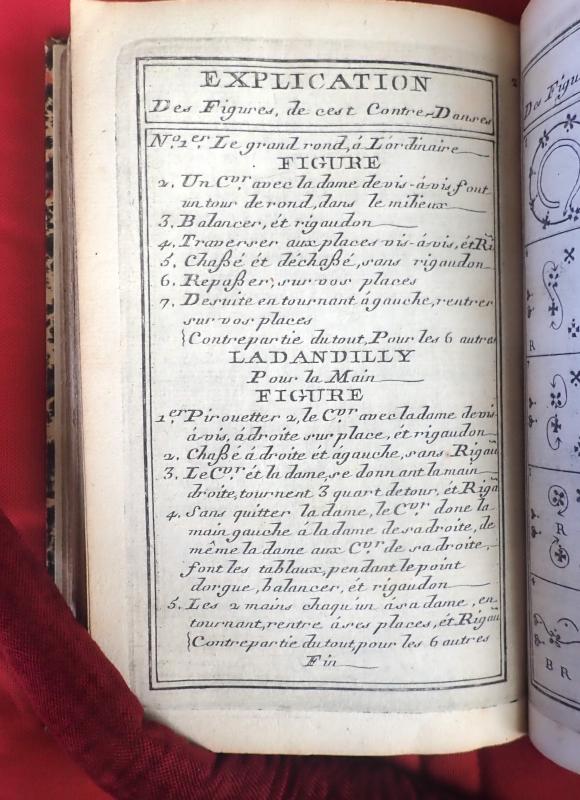 EXPLICATION
Des Figures, de cest Contre-Danses
N.º 1.er Le grand rond, á L'ordinaire
FIGURE
2. Un C.vr avec la dame de vis-á-vis font
un tour de rond, dans le milieux
3. Balancer, ét rigaudon
4. Traverser aux places vis-á-vis, ét Ri
5. Chaßé ét déchaßé, sans rigaudon
6. Repaßer, sur vos places
7. De suite en tournant á gauche, rentrer
sur vos places
{Contrepartie du tout, Pour les 6 autres
LADANDILLY
Pour la Main
FIGURE
1.er Pirouetter 2, le C.vr avec la dame de vis
á vis, á droite sur place, ét rigaudon
2. Chaßé á droite ét á gauche, sans Rigau
3. Le C.vr ét la dame, se donnant la main
droite, tournent 3 quart de tour, ét Riga
4. Sans quitter la dame, le C.vr done la
main gauche á la dame de sa droite, de
même la dame aux C.vr de sa droite,
font les tablaux, pendant le point
dorgue, balancer, ét rigaudon
5. Les 2 mains chaqu'un á sa dame, en
tournant, rentre á ses places, ét Rigau
{Contrepartie du tout, pour les 6 autres
Fin
2
Des Figu
R
R
B R